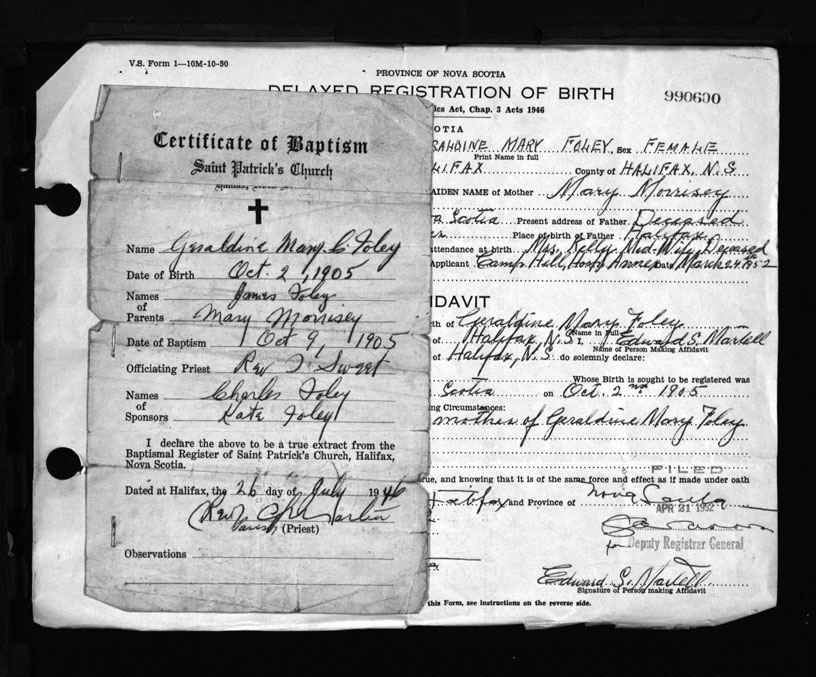 V.S. Form 1—10M-10-50
PROVINCE OF NOVA SCOTIA
DELAYED REGISTRATION OF BIRTH
990600
ics Act, Chap. 3 Acts 1946
Certificate of Baptism
Saint Patrick's Church
✝
Name Geraldine Mary C. Foley
Date of Birth Oct. 2, 1905
Names James Foley
of
Parents Mary Morrisey
Date of Baptism Oct 9, 1905
Officiating Priest Rev T Sweet
Names Charles Foley
of
Sponsors Kate Foley
I declare the above to be a true extract from the
Baptismal Register of Saint Patrick's Church, Halifax,
Nova Scotia.
Dated at Halifax, the 26 day of July 1946
Rev.
(Priest)
Observations
OTIA
RALDINE MARY FOLEY, Sex FEMALE
Print Name in full
LIFAX County of HALIFAX, N.S
AIDEN NAME of Mother Mary Morrisey
a Scotia Present address of Father Deceased
Place of birth of Father Halifax
attendance at birth Mrs. Kelly, Mid-Wife, Deceased
Applicant Camp Hill Hosp Annex Date March 24th 1952
IDAVIT
th of Geraldine Mary Foley
Name in Full
of Halifax, N.S I, Edward S. Martell
Name of Person Making Affidavit
of Halifax, N.S. do solemnly declare:
Whose Birth is sought to be registered was
Scotia on Oct. 2nd 1905
ng Circumstances:
mother of Geraldine Mary Foley
FILED
true, and knowing that it is of the same force and effect as if made under oath
Halifax and Province of Nova Scotia
APR 21 1952
for Deputy Registrar General
Edward S. Martell
Signature of Person making Affidavit
this Form, see instructions on the reverse side.